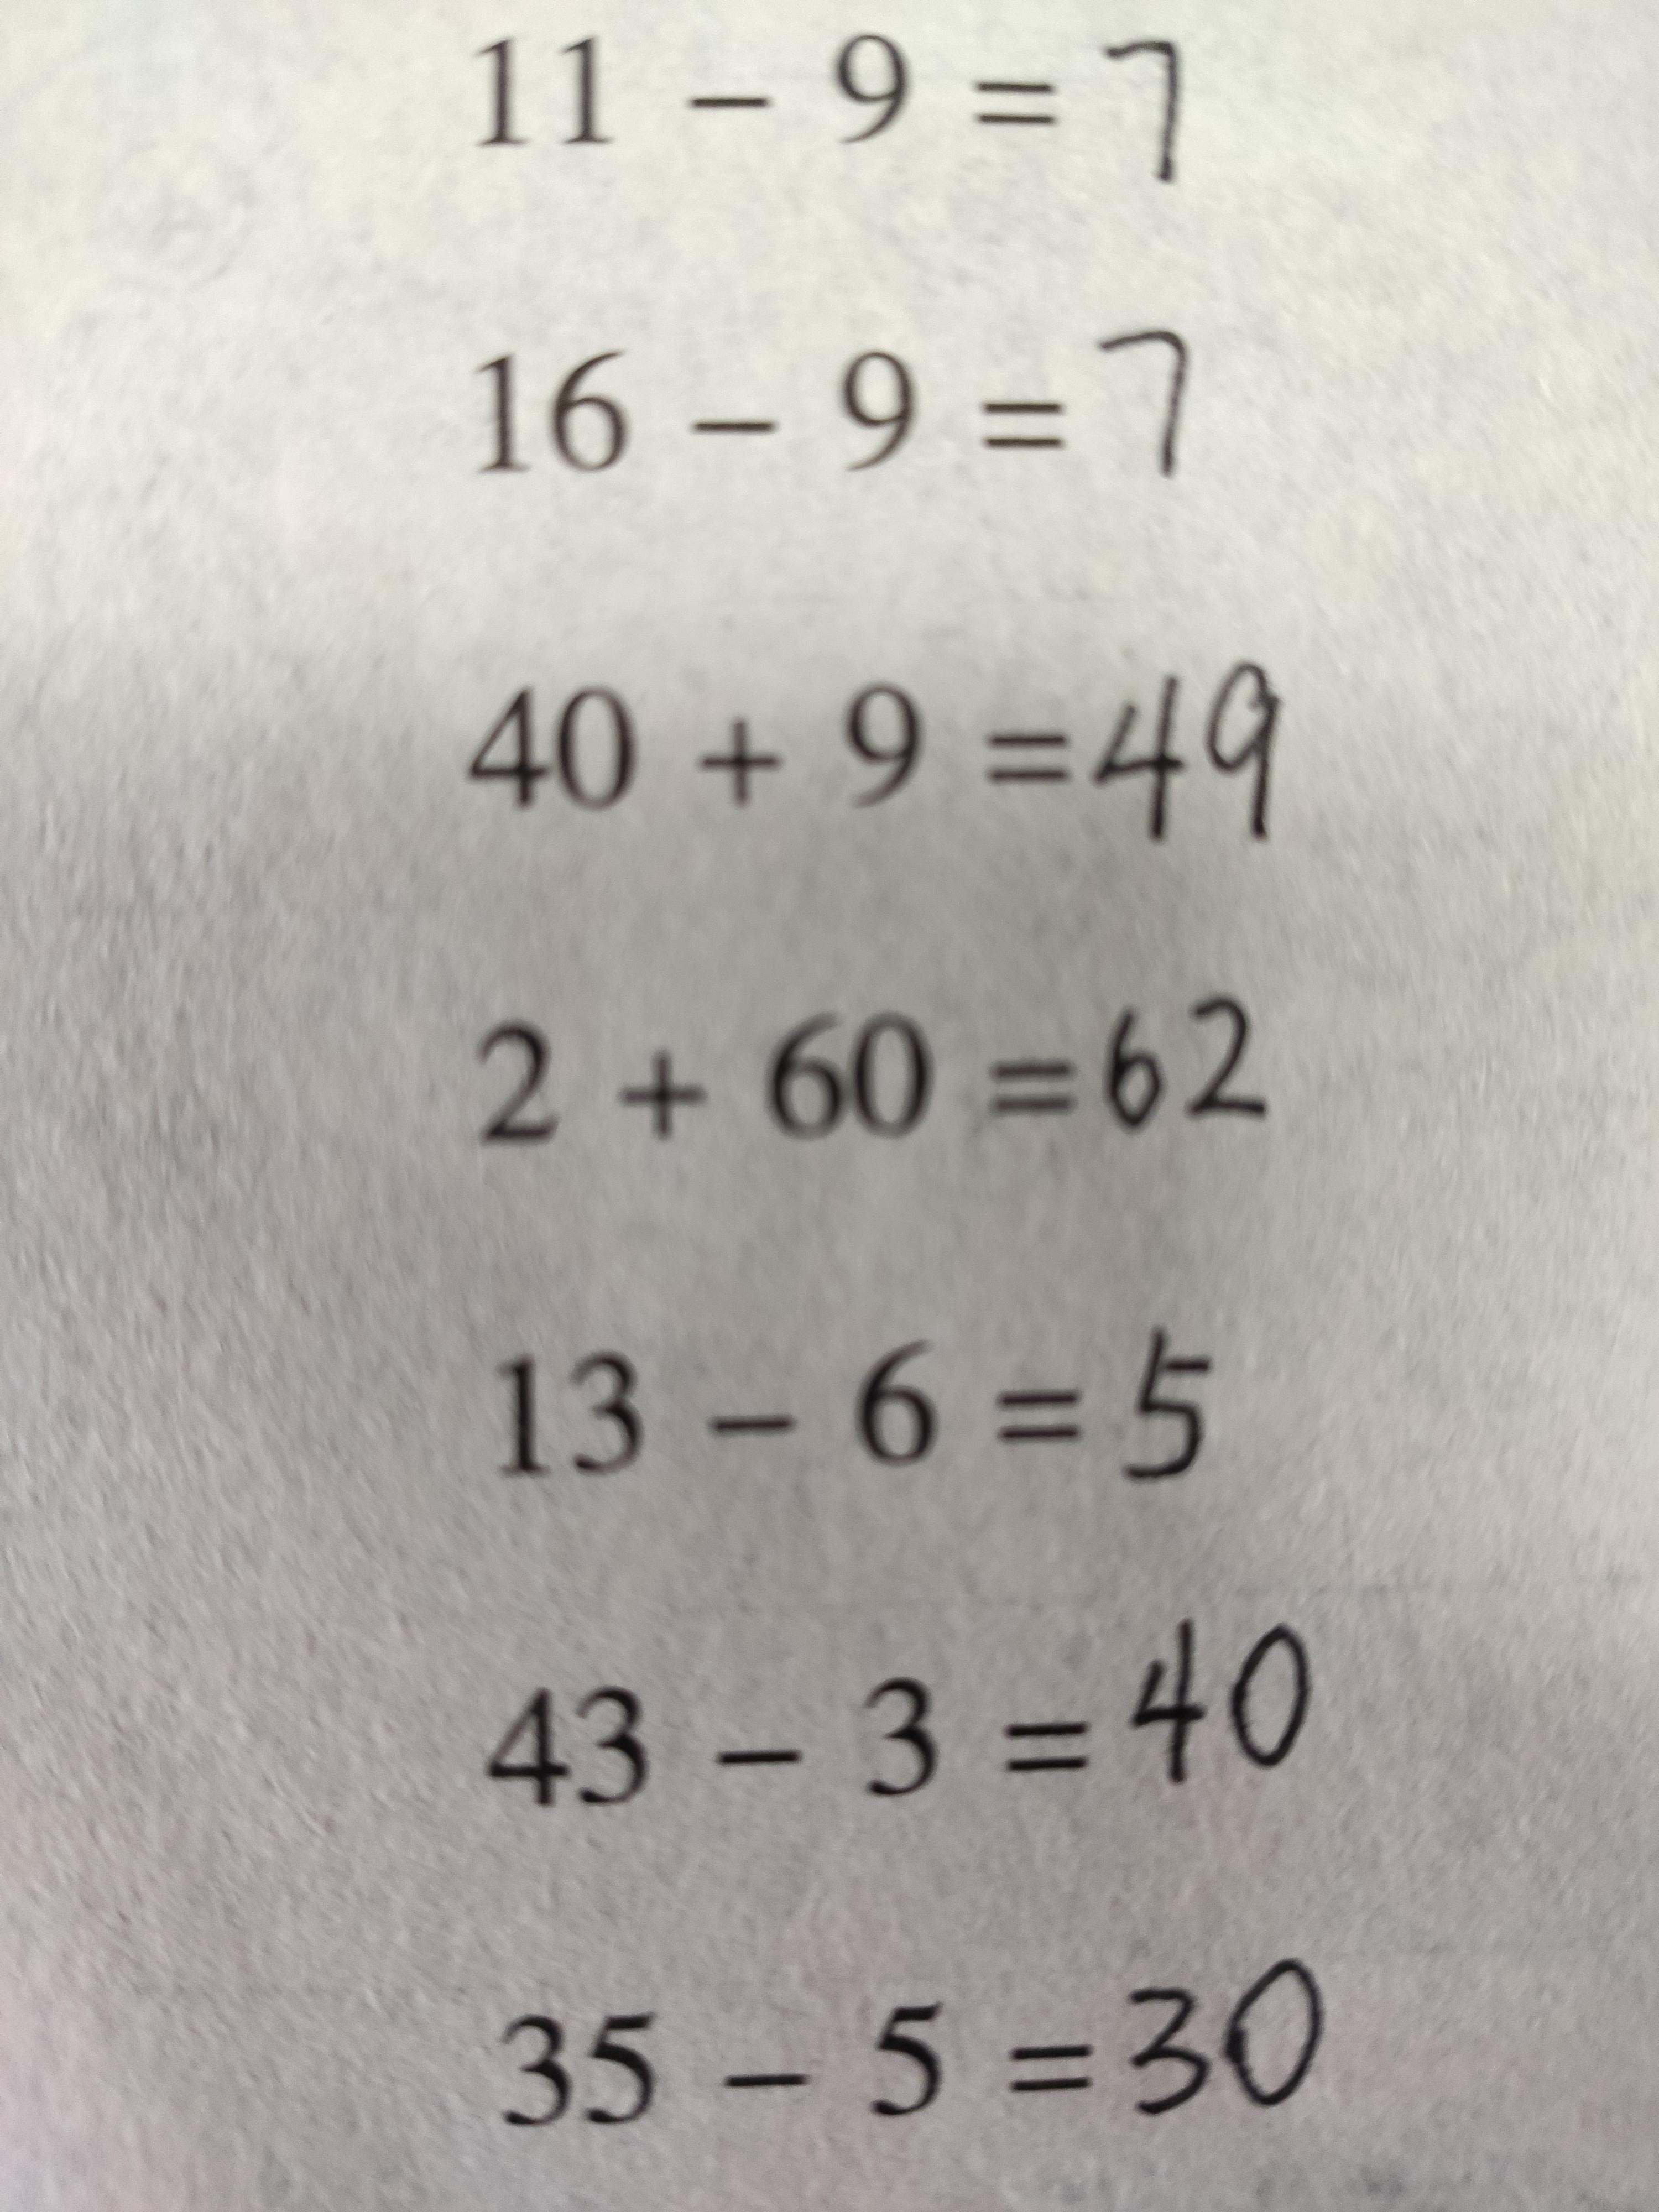 11 − 9 = 7
16 − 9 = 7
40 + 9 = 49
2 + 60 = 62
13 − 6 = 5
43 − 3 = 40
35 − 5 = 30